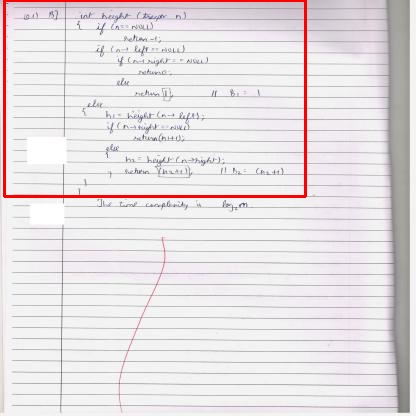 Q.1) B]  int height (treeptr n)
{ if (n == NULL)
return -1;
if (n → left == NULL)
if (n → right == NULL)
return 0;
else
return [1];  // B1 = 1
else
{ h1 = height (n → left);
if (n → right == NULL)
return (h1+1);
else
{
h2 = height (n → right);
} return [(h2+1)];  // B2 = (h2+1)
}
}
The time complexity is log2 n.